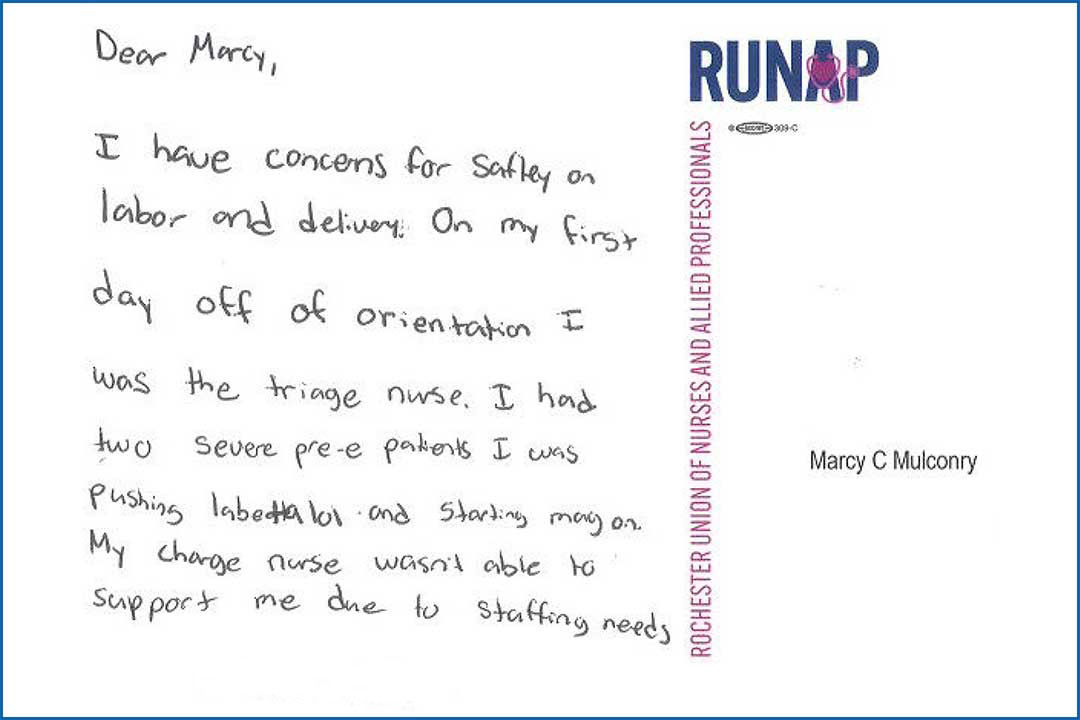 Dear Marcy,
I have concerns for Saftey on
labor and delivery. On my first
day off of orientation I
was the triage nurse. I had
two severe pre-e patients I was
pushing labettalol and starting mag on.
My charge nurse wasn't able to
support me due to staffing needs
RUNAP
309-C
ROCHESTER UNION OF NURSES AND ALLIED PROFESSIONALS
Marcy C Mulconry